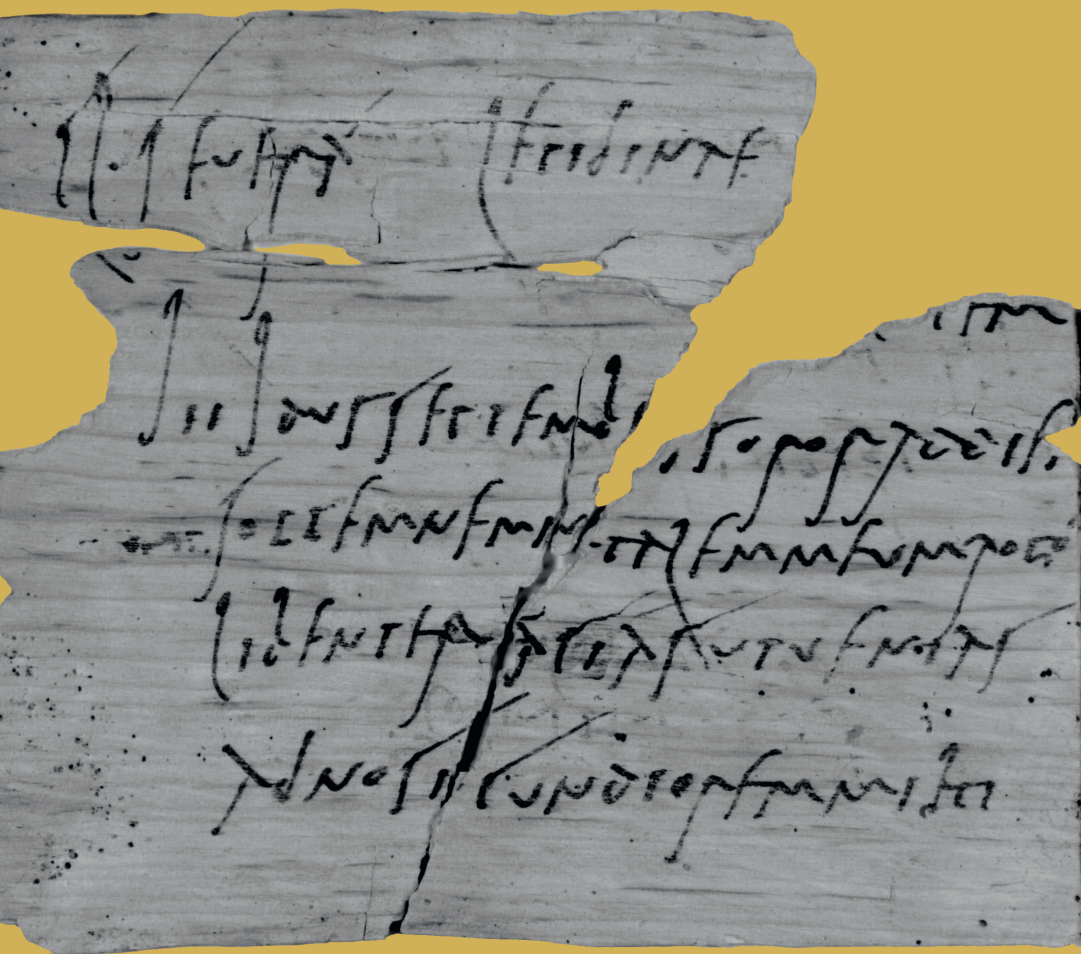 Cl · Seuerá Lepidinae
tem
iii Idus Septembr s soror ad diem
sollemnem natalem meum rogó
libenter faciás ut uenias
ad nos iucundiorem mihi